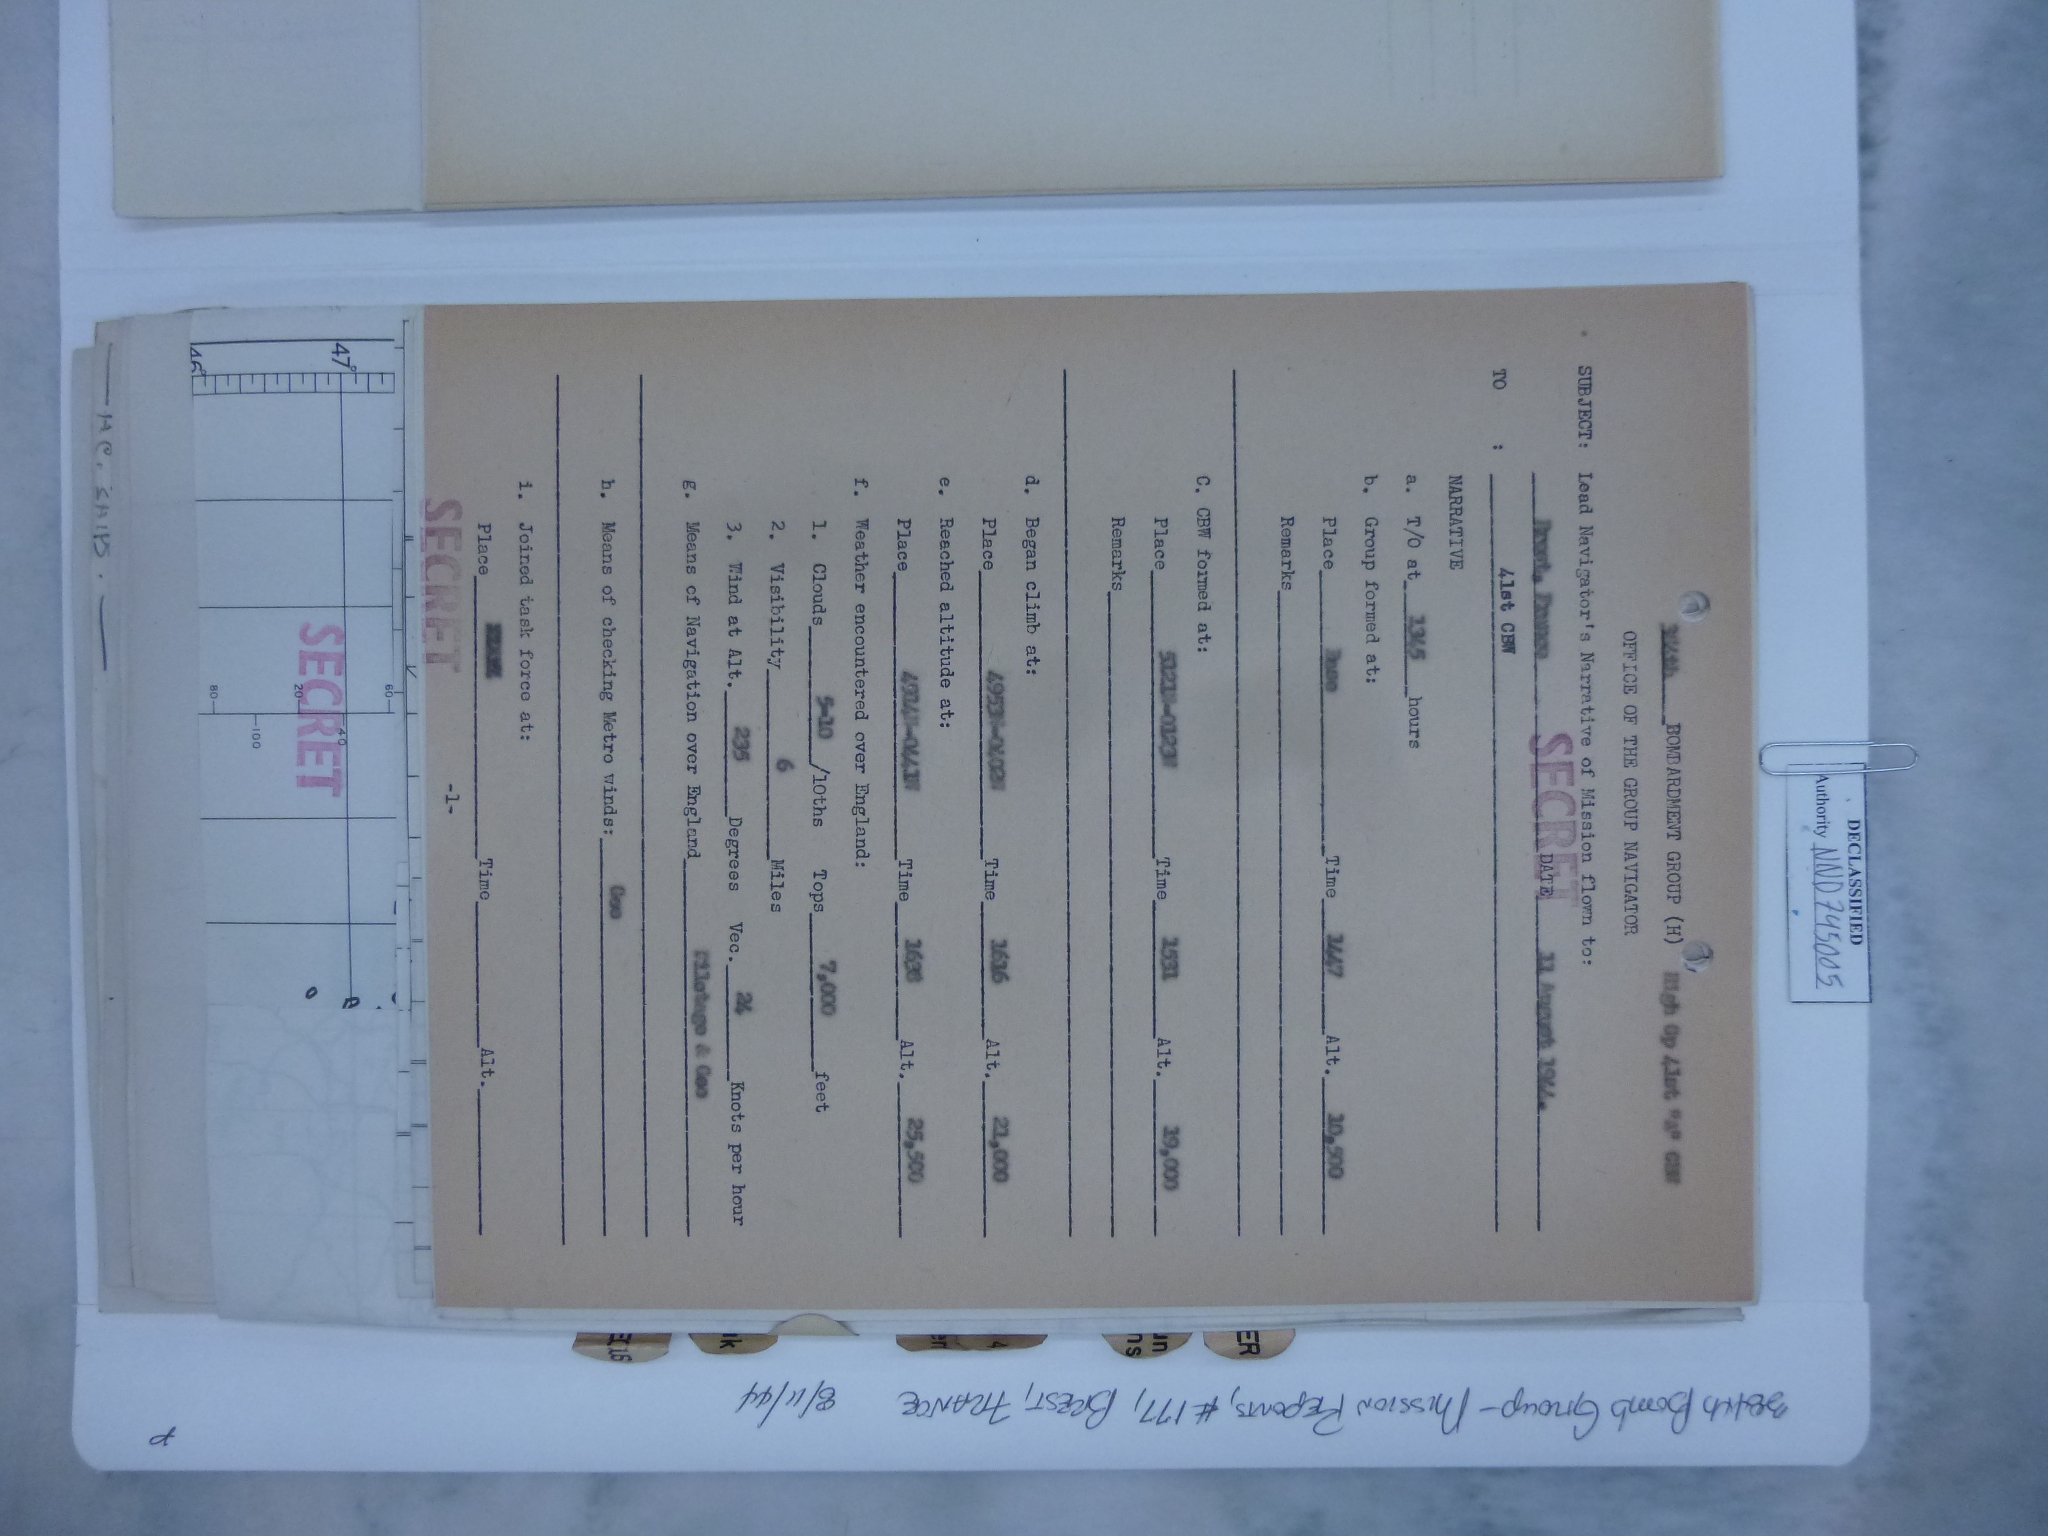 DECLASSIFIED
Authority NND 745005
384th BOMBARDMENT GROUP (H) High Gp 41st "B" CBW
OFFICE OF THE GROUP NAVIGATOR
SUBJECT: Lead Navigator's Narrative of Mission flown to:
Brest, France DATE 11 August 1944.
SECRET
TO : 41st CBW
NARRATIVE
a. T/O at 1345 hours
b. Group formed at:
Place Base Time 1447 Alt. 10,500
Remarks
C. CBW formed at:
Place Time 1531 Alt. 19,000
Remarks
d. Began climb at:
Place Time 1616 Alt. 21,000
e. Reached altitude at:
Place Time Alt. 25,500
f. Weather encountered over England:
1. Clouds 5-10 /10ths Tops 7,000 feet
2. Visibility 6 Miles
3. Wind at Alt. 235 Degrees Vec. 24 Knots per hour
g. Means of Navigation over England Pilotage & Gee
h. Means of checking Metro winds: Gee
i. Joined task force at:
Place Time Alt.
-1-
SECRET
SECRET
47°
46°
60
40
20
80
100
384th Bomb Group - Mission Reports, #177, BREST, FRANCE 8/11/44